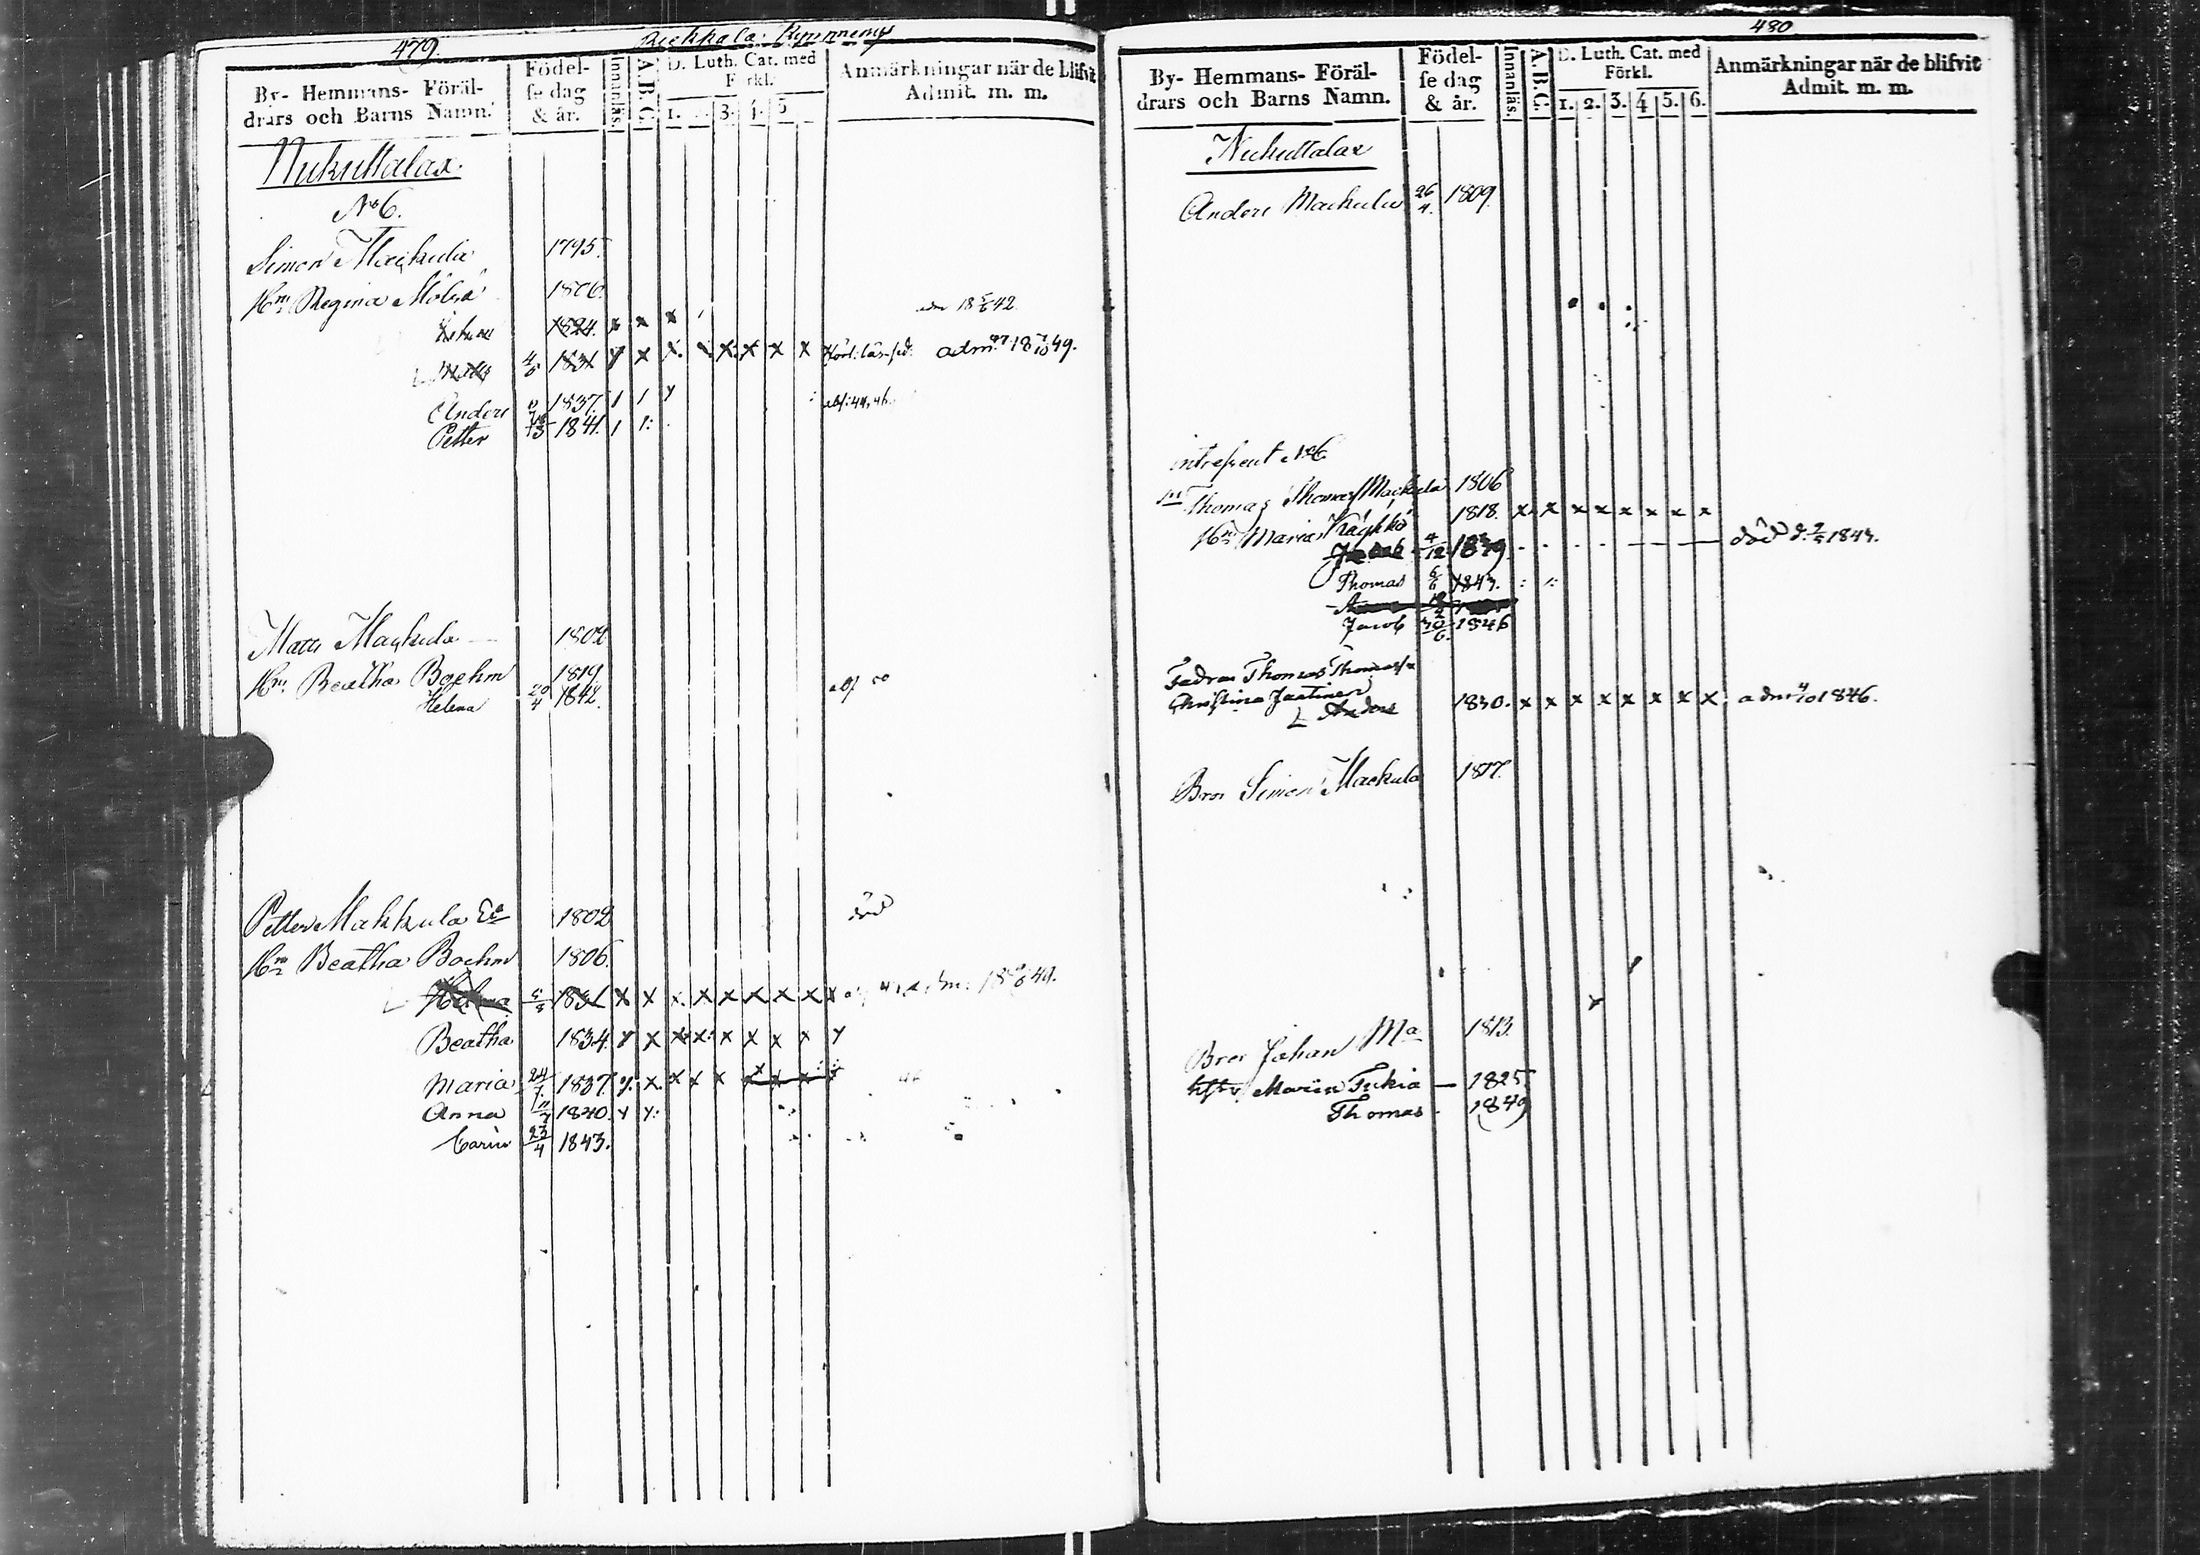 479.
By- Hemmans- Föräl-
drars och Barns Namn.
Födel-
se dag
& år.
Innanläs.
A.B.C.
D. Luth. Cat. med
Förkl.
1. 3. 4. 5
Anmärkningar när de blifvit
Admit. m. m.
Nukuttalax.
No 6.
Simon Mackula 1795.
Hu Regina 1806.
1824. x x x 18 42
4/5 1831 x x x x x x x x adm. 18 49.
Anders 1837. 1 1 y
Petter 1841. 1 1:
Matts Mackula 1802
Hu Beatha Boehm 1819
Helena 20/4 1842.
Petter Makkula 1802 död
Hu Beatha Boehm 1806.
Helena 1831 x x x x x x x x x
Beatha 1834. y x x x x x x x y
Maria 24/7. 1837. y. x x x x x x x
Anna 1840. y y:
Carin 23/4 1843.
480
By- Hemmans- Föräl-
drars och Barns Namn.
Födel-
se dag
& år.
Innanläs.
A.B.C.
D. Luth. Cat. med
Förkl.
1. 2. 3. 4 5. 6.
Anmärkningar när de blifvit
Admit. m. m.
Nukuttalax
Anders Mackula 26/4. 1809.
Intressent No 6
Thomas Thomass Mackula 1806
Hu Maria 1818. x x x x x x x x
Jacob 4/12 1839 död d. 1843.
Thomas 6/6 1843.
Jacob 30/6. 1846
Fadren Thomas Thomass
Christina Jaatinen
Anders 1830. x x x x x x x x adm 4/10 1846.
Bror Simon Mackula 1817.
Bror Johan Ma 1813.
hustr Maria Tukia — 1825.
Thomas - 1849